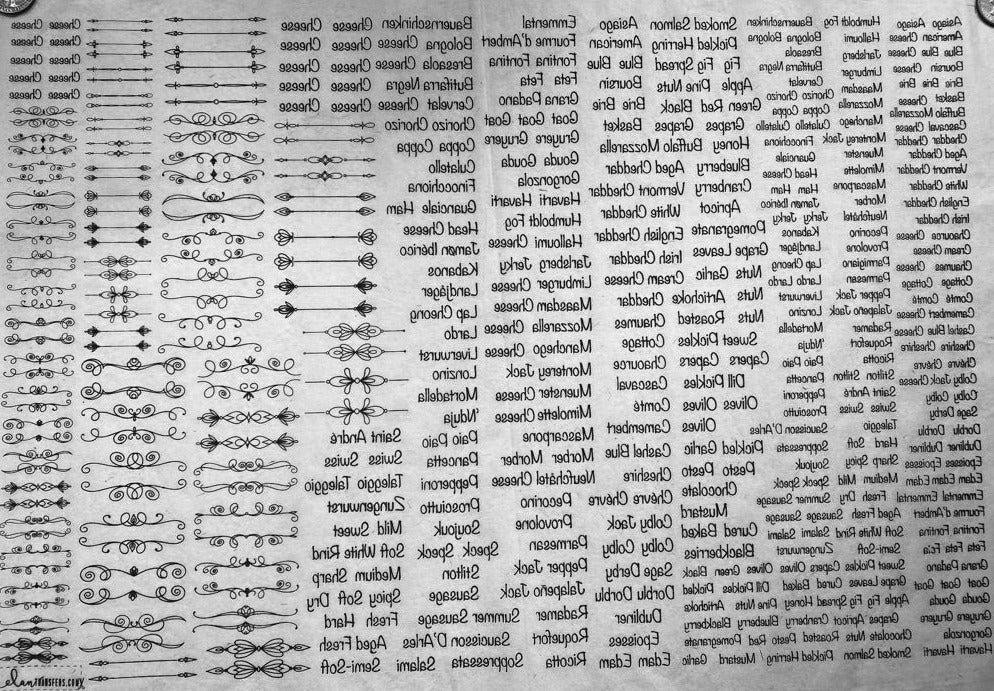 Asiago Asiago
American Cheese
Blue Blue Cheese
Boursin Cheese
Brie Brie Brie
Basket Cheese
Buffalo Mozzarella
Cascaval Cheese
Cheddar Cheese
Aged Cheddar
Vermont Cheddar
White Cheddar
English Cheddar
Irish Cheddar
Chaource Cheese
Cream Cheese
Chaumes Cheese
Cottage Cottage
Comté Comté
Camembert Cheese
Cashel Blue Cheese
Cheshire Cheshire
Chèvre Chèvre
Colby Jack Cheese
Colby Colby
Sage Derby
Dorblu Dorblu
Dubliner Dubliner
Epoisses Epoisses
Edam Edam Edam
Emmental Emmental
Fourme d'Ambert
Fontina Fontina
Feta Feta Feta
Grana Padano
Goat Goat Goat
Gouda Gouda
Gruyere Gruyere
Gorgonzola
Havarti Havarti
Humboldt Fog
Halloumi
Jarlsberg
Limburger
Maasdam
Mozzarella
Manchego
Monterey Jack
Muenster
Mimolette
Mascarpone
Morbier
Neufchâtel
Pecorino
Provolone
Parmigiano
Parmesan
Pepper Jack
Jalapeño Jack
Radamer
Roquefort
Ricotta
Stilton Stilton
Saint André
Swiss Swiss
Taleggio
Hard Soft
Sharp Spicy
Medium Mild
Fresh Dry
Aged Fresh
Soft White Rind
Semi-Soft
Bauernschinken
Bologna Bologna
Bresaola
Butifarra Negra
Cervelat
Chorizo Chorizo
Coppa Coppa
Culatello Culatello
Finocchiona
Guanciale
Head Cheese
Ham Ham
Jamon Ibérico
Jerky Jerky
Kabanos
Landjäger
Lap Cheong
Lardo Lardo
Liverwurst
Lonzino
Mortadella
'Nduja
Paio Paio
Pancetta
Pepperoni
Prosciutto
Saucisson D'Arles
Soppressata
Soujouk
Speck Speck
Summer Sausage
Sausage Sausage
Salami Salami
Zungenwurst
Sweet Pickles Capers Olives Olives Green Black
Grape Leaves Cured Baked Dill Pickles Pickled
Apple Fig Fig Spread Honey Pine Nuts Artichoke
Grapes Apricot Cranberry Blueberry Blackberry
Chocolate Nuts Roasted Pesto Red Pomegranate
Smoked Salmon Pickled Herring / Mustard Garlic
Smoked Salmon
Pickled Herring
Fig Fig Spread
Apple Pine Nuts
Green Red Black
Grapes Grapes
Honey
Blueberry
Cranberry
Apricot
Pomegranate
Grape Leaves
Nuts Garlic
Nuts Artichoke
Nuts Roasted
Sweet Pickles
Capers Capers
Dill Pickles
Olives Olives
Olives
Pickled Garlic
Pesto Pesto
Chocolate
Mustard
Cured Baked
Blackberries
Asiago
American
Blue Blue
Boursin
Brie Brie
Basket
Buffalo Mozzarella
Aged Cheddar
Vermont Cheddar
White Cheddar
English Cheddar
Irish Cheddar
Cream Cheese
Cheddar
Chaumes
Cottage
Chaource
Cascaval
Comté
Camembert
Cashel Blue
Cheshire
Chèvre Chèvre
Colby Jack
Colby Colby
Sage Derby
Dorblu Dorblu
Dubliner
Epoisses
Edam Edam
Emmental
Fourme d'Ambert
Fontina Fontina
Feta Feta
Grana Padano
Goat Goat
Gruyere Gruyere
Gouda Gouda
Gorgonzola
Havarti Havarti
Humboldt Fog
Halloumi Cheese
Jarlsberg
Limburger Cheese
Maasdam Cheese
Mozzarella Cheese
Manchego Cheese
Monterey Jack
Muenster Cheese
Mimolette Cheese
Mascarpone
Morbier Morbier
Neufchâtel Cheese
Pecorino
Provolone
Parmesan
Pepper Jack
Jalapeño Jack
Radamer
Roquefort
Ricotta
Bauernschinken
Bologna
Bresaola
Butifarra Negra
Cervelat
Chorizo Chorizo
Coppa Coppa
Culatello
Finocchiona
Guanciale Ham
Head Cheese
Jamon Ibérico
Jerky
Kabanos
Landjäger
Lap Cheong
Lardo
Liverwurst
Lonzino
Mortadella
'Nduja
Paio Paio
Pancetta
Pepperoni
Prosciutto
Soujouk
Speck Speck
Stilton
Sausage
Summer Sausage
Saucisson D'Arles
Soppressata Salami
Cheese Cheese
Cheese Cheese Cheese
Cheese Cheese Cheese
Cheese Cheese Cheese
Cheese Cheese Cheese
Saint André
Swiss Swiss
Taleggio Taleggio
Zungenwurst
Mild Sweet
Soft White Rind
Medium Sharp
Spicy Soft Dry
Fresh Hard
Aged Fresh
Semi-Soft
Cheese Cheese
Cheese Cheese
Cheese Cheese
Cheese Cheese
Cheese Cheese
Cheese Cheese
elanTRANSFERS.COM